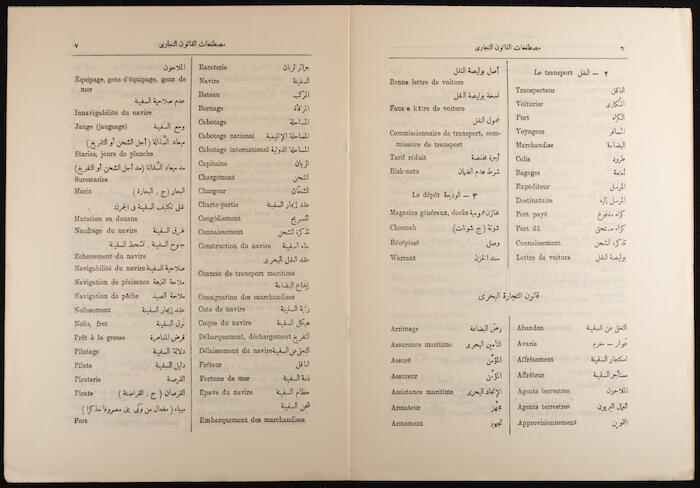 ٦ مصطلحات القانون التجارى
Le transport ٢ – النقل
Transporteur الناقل
Voiturier المكارى
Port الكراء
Voyageur المسافر
Marchandise البضاعة
Colis طرود
Bagages أمتعة
Expéditeur المرسل
Destinataire المرسل إليه
Port payé كراء مدفوع
Port dû كراء مستحق
Connaissement تذكرة الشحن
Lettre de voiture بوليصة النقل
أصل بوليصة النقل
Bonne lettre de voiture
نسخة بوليصة النقل
Fausse lettre de voiture
عمول النقل
Commissionnaire de transport, com-
missaire de transport
Tarif réduit أجرة مخفضة
Risk-note شرط عدم الضمان
Le dépôt ٣ – الوديعة
Magasins généraux, docks مخازن عمومية
Chounah شونة (ج شونات)
Récépissé وصل
Warrant سند الخزن
قانون التجارة البحرى
Abandon التخلى عن السفينة
Avarie عوار – مغرم
Affrètement استئجار السفينة
Affréteur مستأجر السفينة
Agents terrestres الملاحون
Agents terrestres العمال البريون
Approvisionnement التموين
Arrimage رص البضاعة
Assurance maritime التأمين البحرى
Assuré المؤمَّن
Assureur المؤمِّن
Assistance maritime الإنجاد البحرى
Armateur مجهز
Armement تجهيز
مصطلحات القانون التجارى ٧
Baraterie جرائر الربان
Navire السفينة
Bateau المركب
Bornage المرفأة
Cabotage المساحلة
Cabotage national المساحلة الإقليمية
Cabotage international المساحلة الدولية
Capitaine الربان
Chargement الشحن
Chargeur الشحان
Charte-partie عقد إيجار السفينة
Congédiement التسريح
Connaissement تذكرة الشحن
Construction du navire بناء السفينة
عقد النقل البحرى
Contrat de transport maritime
إيداع البضاعة
Consignation des marchandises
Cote de navire رتبة السفينة
Coque du navire هيكل السفينة
Débarquement, déchargement التفريغ
Délaissement du navire التخلى عن السفينة
Fréteur الناقل
Fortune de mer ذمة السفينة
Epave du navire حطام السفينة
شحن السفينة
Embarquement des marchandises
الملاحون
Equipage, gens d'équipage, gens de
mer
عدم صلاحية السفينة
Innavigabilité du navire
Jauge (jaugeage) وسع السفينة
ميعاد السقالة (أجل الشحن أو التفريغ)
Staries, jours de planche
مد ميعاد السقالة (مد أجل الشحن أو التفريغ)
Surestaries
Marin البحار (ج . البحارة)
على تكايف السفينة فى الجمرك
Mutation en douane
Naufrage du navire غرق السفينة
جنوح السفينة . تشحط السفينة
Echouement du navire
Navigabilité du navire صلاحية السفينة
Navigation de plaisance ملاحة النزهة
Navigation de pêche ملاحة الصيد
Nolissement عقد إيجار السفينة
Nolis, fret نول السفينة
Prêt à la grosse قرض المخاطرة
Pilotage دلالة السفينة
Pilote دليل السفينة
Piraterie القرصنة
Pirate القرصان (ج . القراصنة)
ميناء (مفعال من ونى ينى مصروفا مذكرا)
Port